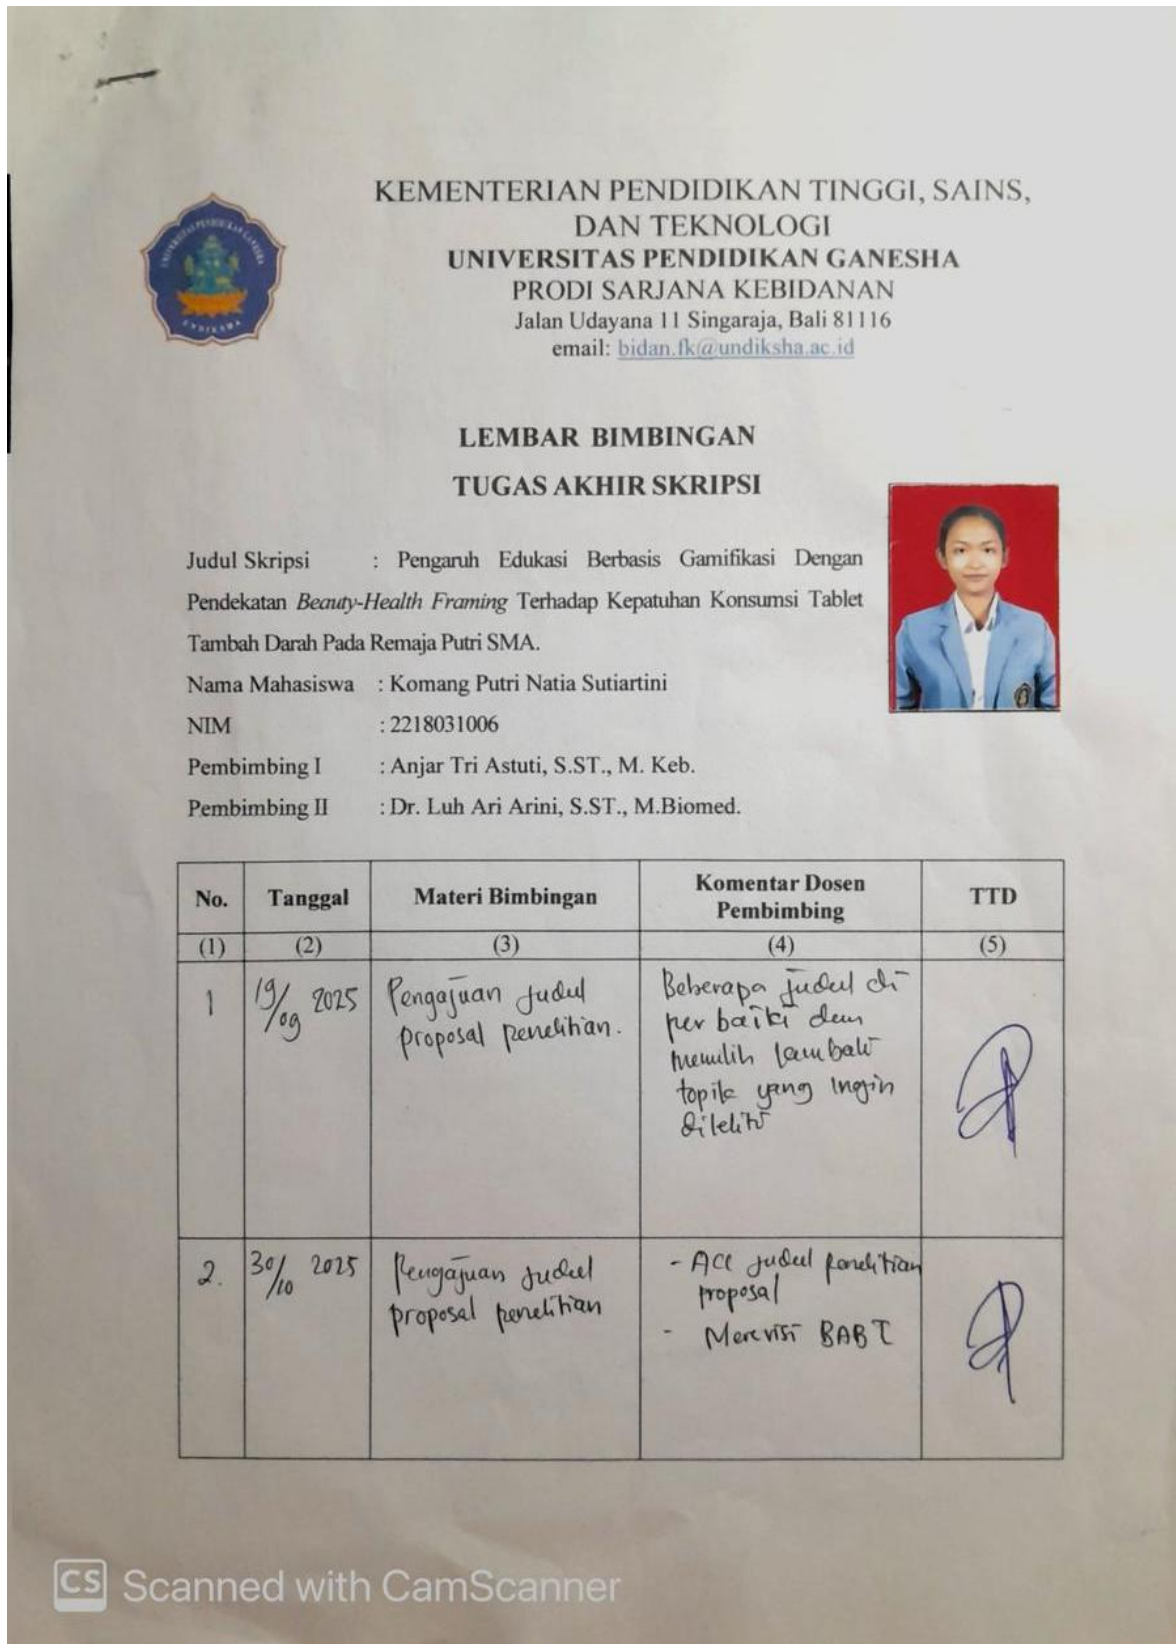 KEMENTERIAN PENDIDIKAN TINGGI, SAINS,
DAN TEKNOLOGI
UNIVERSITAS PENDIDIKAN GANESHA
PRODI SARJANA KEBIDANAN
Jalan Udayana 11 Singaraja, Bali 81116
email: bidan.fk@undiksha.ac.id
UNIVERSITAS PENDIDIKAN GANESHA
UNDIKSHA
LEMBAR BIMBINGAN
TUGAS AKHIR SKRIPSI
Judul Skripsi : Pengaruh Edukasi Berbasis Gamifikasi Dengan
Pendekatan Beauty-Health Framing Terhadap Kepatuhan Konsumsi Tablet
Tambah Darah Pada Remaja Putri SMA.
Nama Mahasiswa : Komang Putri Natia Sutiartini
NIM : 2218031006
Pembimbing I : Anjar Tri Astuti, S.ST., M. Keb.
Pembimbing II : Dr. Luh Ari Arini, S.ST., M.Biomed.
No. Tanggal Materi Bimbingan Komentar Dosen Pembimbing TTD
(1) (2) (3) (4) (5)
1 19/09 2025 Pengajuan judul
proposal penelitian.
Beberapa judul di
perbaiki dan
memilih kembali
topik yang ingin
diteliti
2. 30/10 2025 Pengajuan judul
proposal penelitian
- ACC judul penelitian
proposal
- Merevisi BAB I
CS Scanned with CamScanner